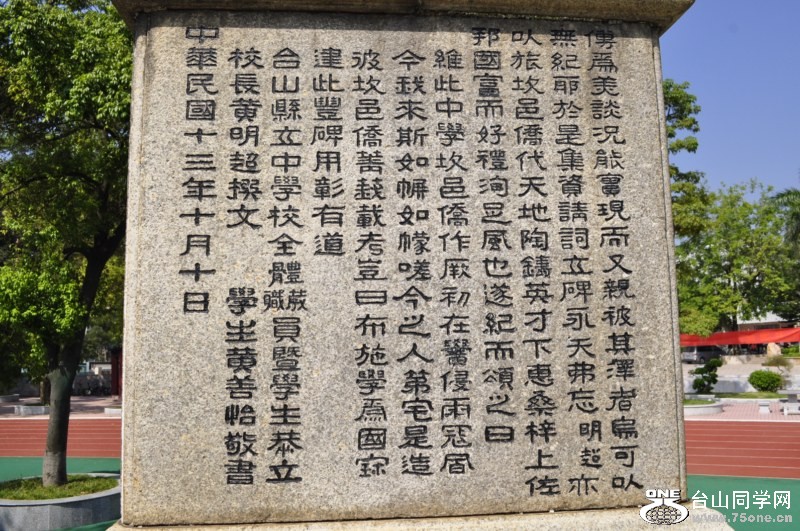 傳爲美談況能實現而又親被其澤者烏可以
無紀耶於是集資請詞立碑永天弗忘明超亦
以旅坎邑僑代天地陶鑄英才下惠桑梓上佐
邦國富而好禮洵足風也遂紀而頌之曰
維此中學坎邑僑作厥初在
今我來斯如帡如幪嗟今之人第宅是造
彼坎邑僑菁莪載考豈曰布施學爲國寶
建此豐碑用彰有道
台山縣立中學校全體教職員暨學生恭立
校長黃明超撰文 學生黃善怡敬書
中華民國十三年十月十日
ONE 台山同学网
www.75one.cn